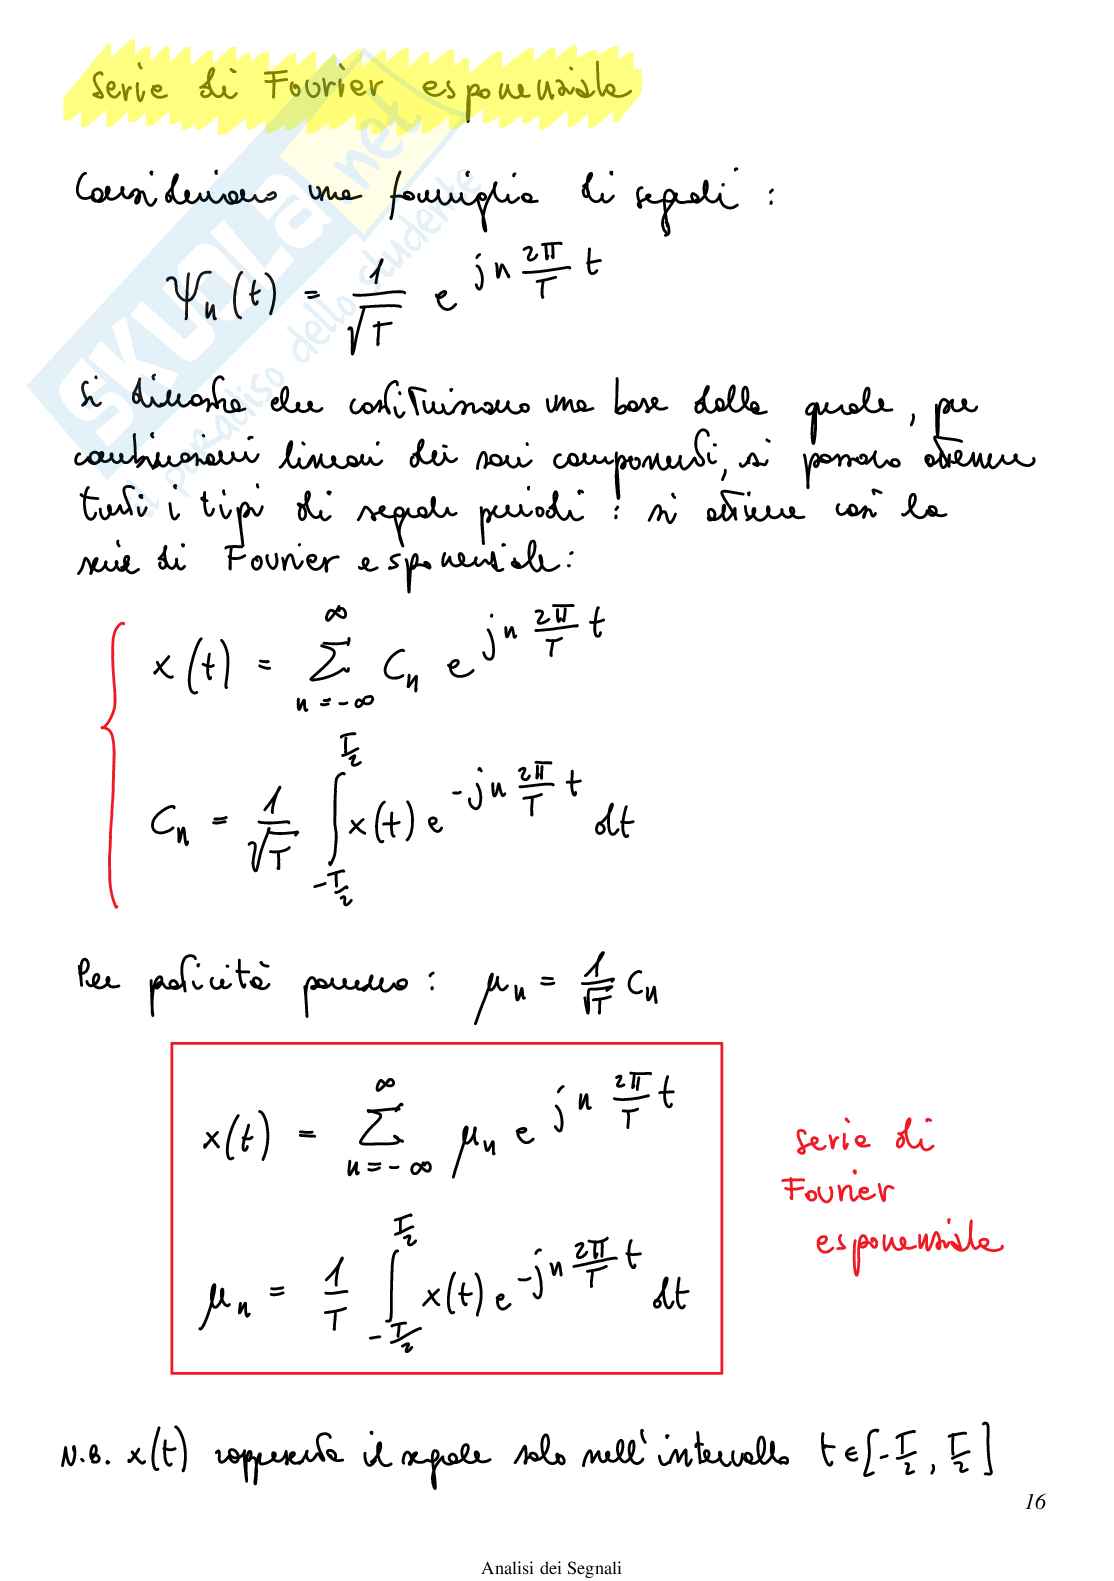 Serie di Fourier esponenziale
Consideriamo una famiglia di segnali :
Ψn (t) = 1/√T e^(jn 2π/T t)
Si dimostra che costituiscono una base dalla quale, per
combinazioni lineari dei suoi componenti, si possono ottenere
tutti i tipi di segnale periodici : si ottiene così la
serie di Fourier esponenziale:
x(t) = ∑_(n=-∞)^∞ Cn e^(jn 2π/T t)
Cn = 1/√T ∫_(-T/2)^(T/2) x(t) e^(-jn 2π/T t) dt
Per praticità poniamo : μn = 1/√T Cn
x(t) = ∑_(n=-∞)^∞ μn e^(jn 2π/T t)
μn = 1/T ∫_(-T/2)^(T/2) x(t) e^(-jn 2π/T t) dt
serie di
Fourier
esponenziale
N.B. x(t) rappresenta il segnale solo nell'intervallo t ∈ [-T/2, T/2]
16
Analisi dei Segnali
SKUOLA.net
il paradiso dello studente